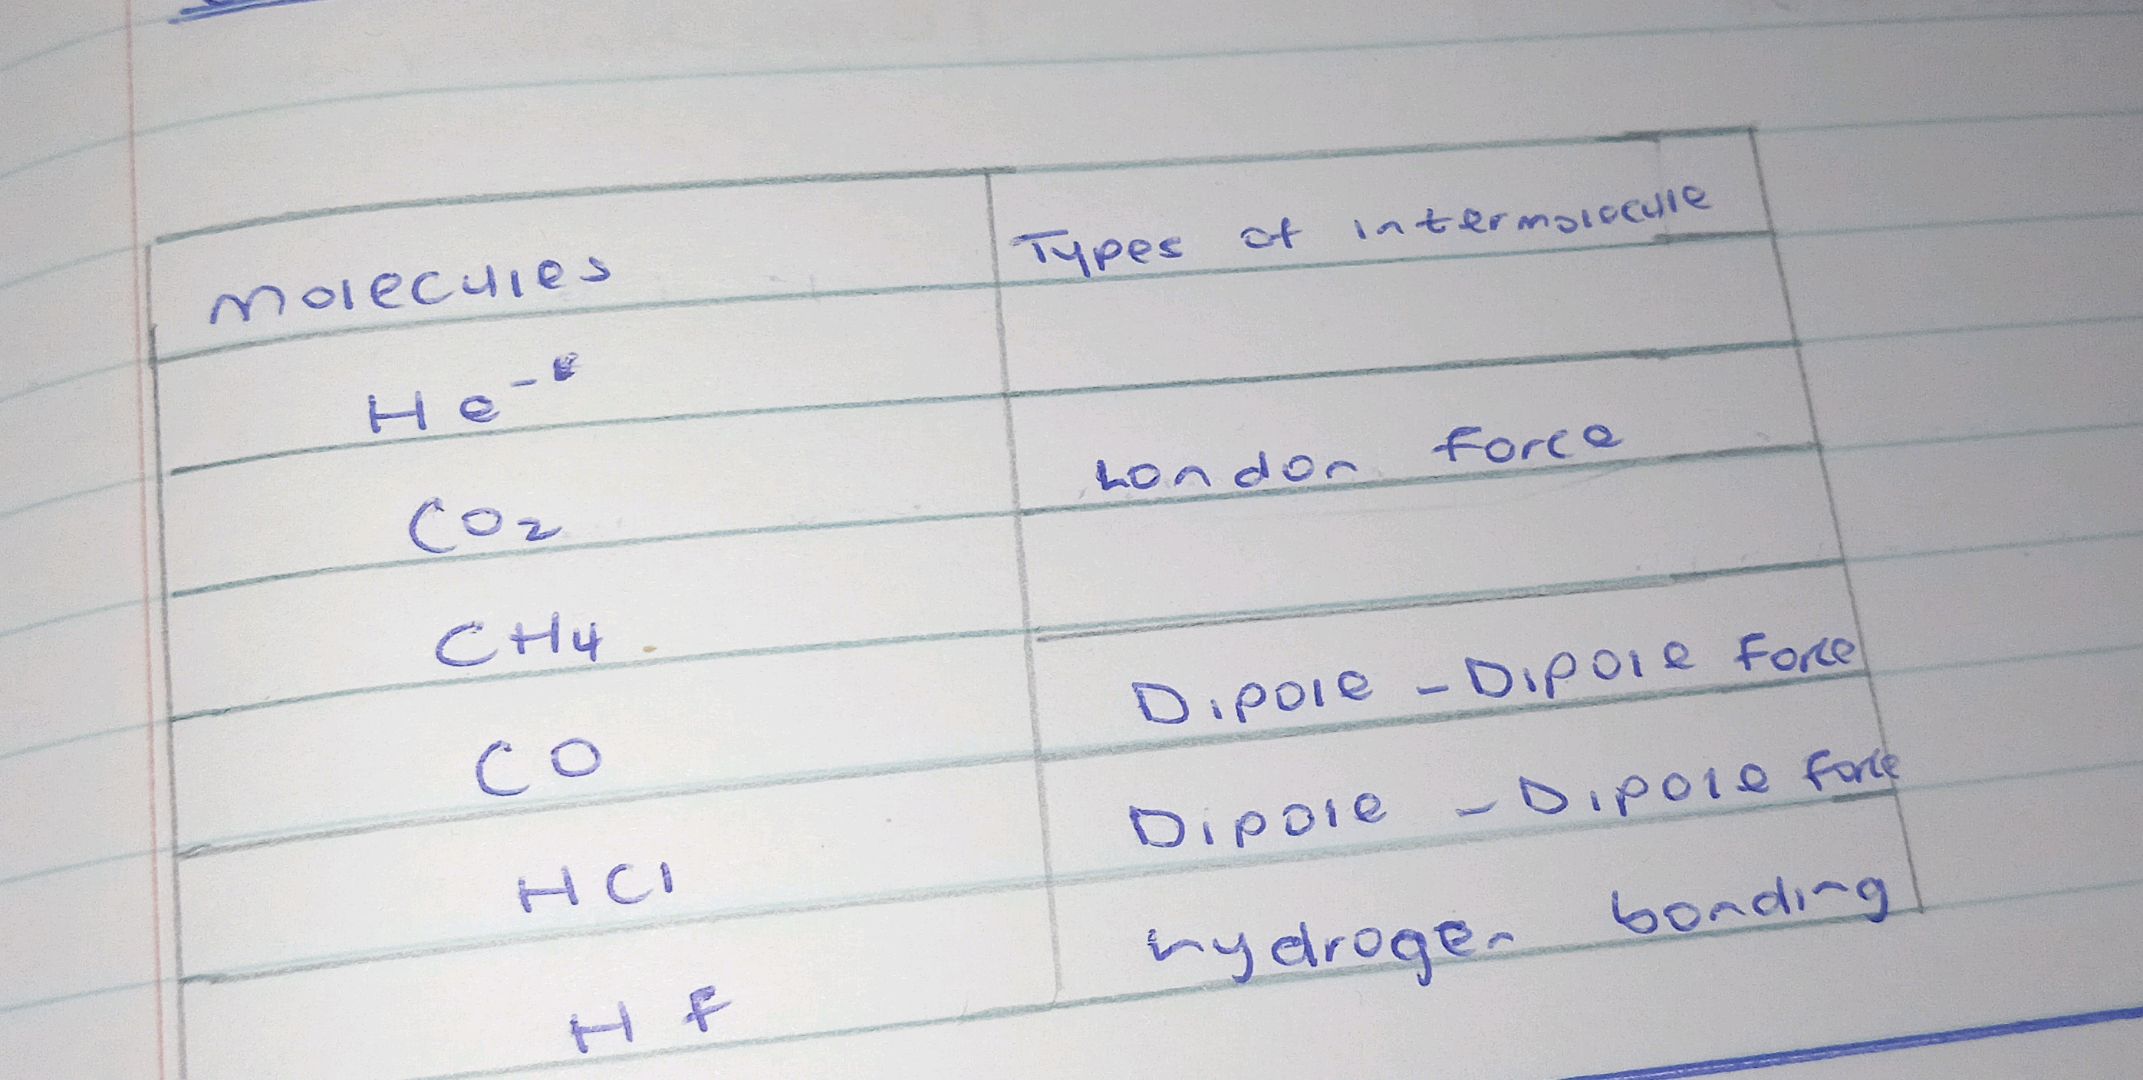 Molecules Types of intermolecule
He
CO2 London force
CH4
CO Dipole - Dipole force
HCl Dipole - Dipole force
HF hydrogen bonding